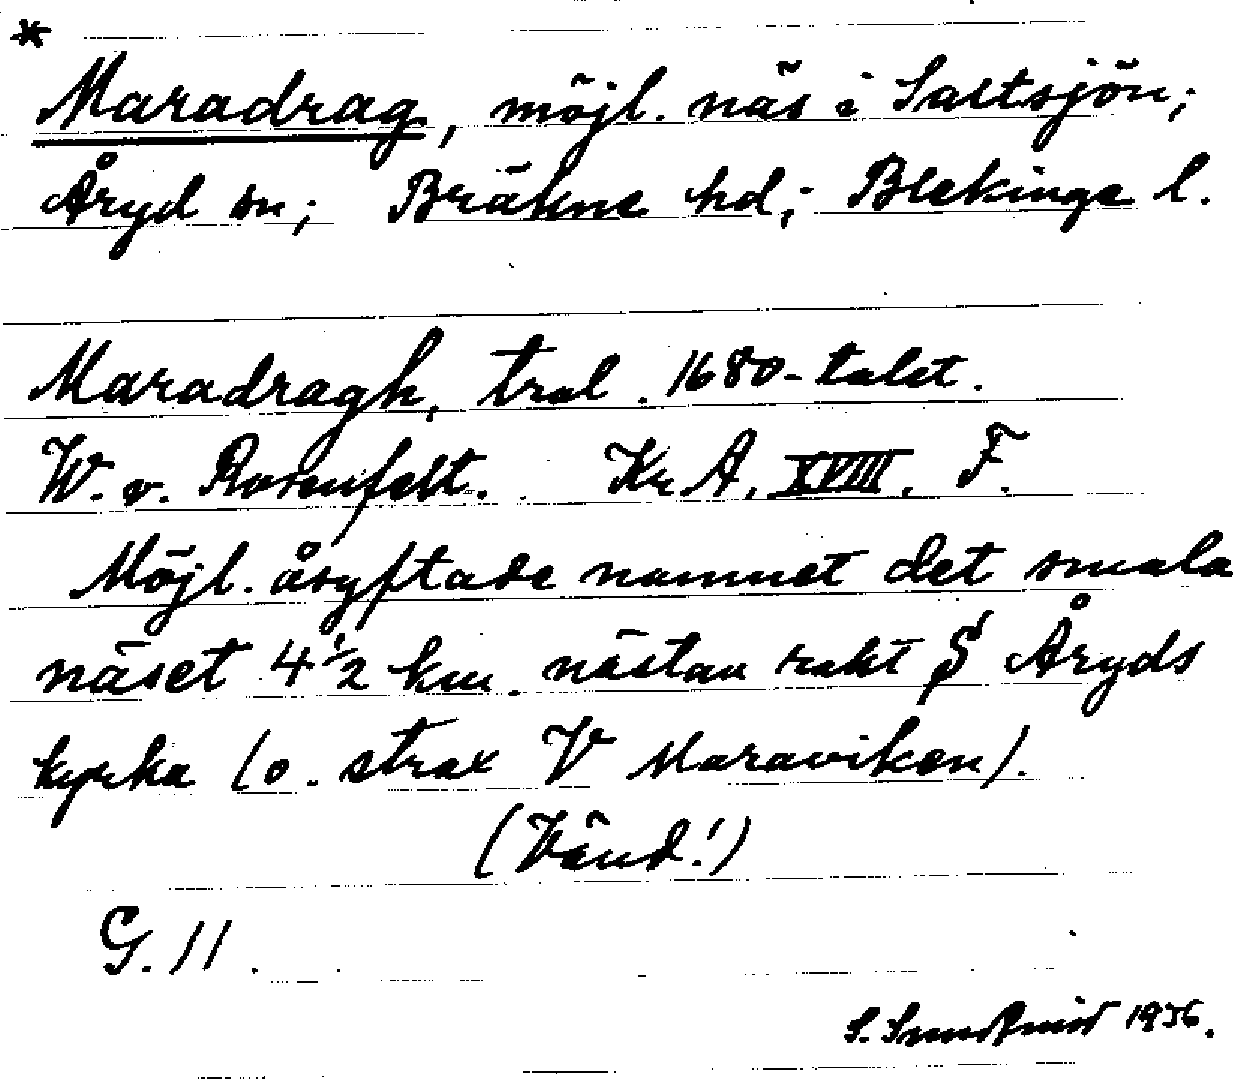 *
Maradrag, möjl. näs i Saltsjön;
Åryd sn; Bräkne hd; Blekinge l.
Maradragh, trol. 1680-talet.
W. v. Rosenfelt. Kr A. XVIII. F.
Möjl. åsyftade namnet det smala
näset 4 1/2 km. nästan rakt S Åryds
kyrka (o. strax V Maraviken).
(Vänd!)
G. 11.
S. 1936.